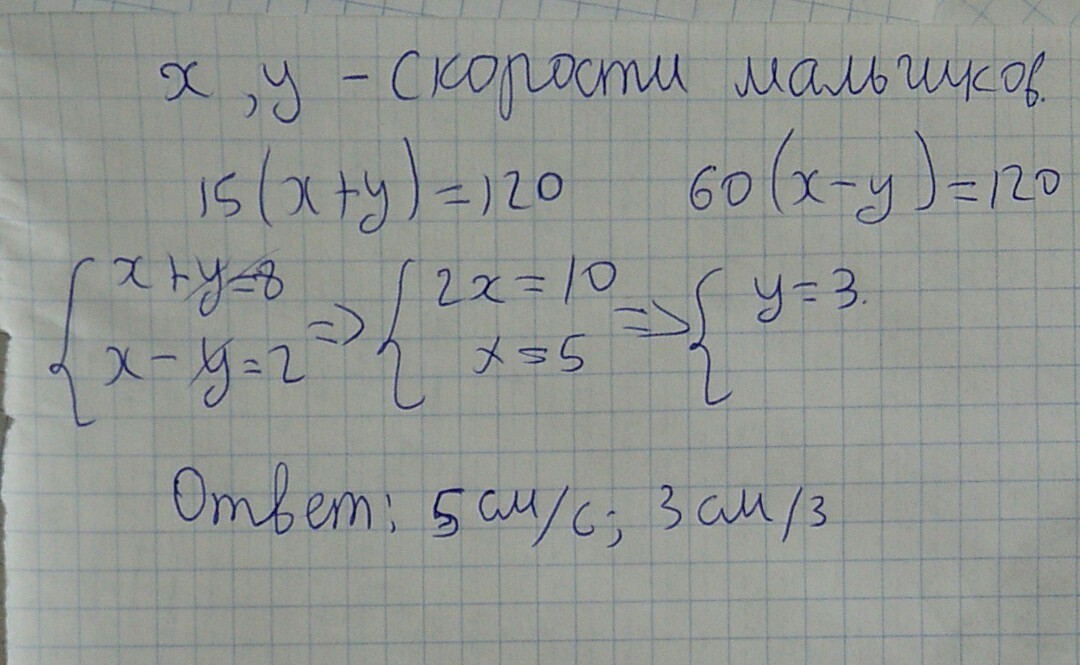 x, y - скорости мальчиков.
15(x+y)=120 60(x-y)=120
{ x+y=8 { 2x=10 { y=3.
x-y=2 => x=5 =>
Ответ: 5 см/с; 3 см/з